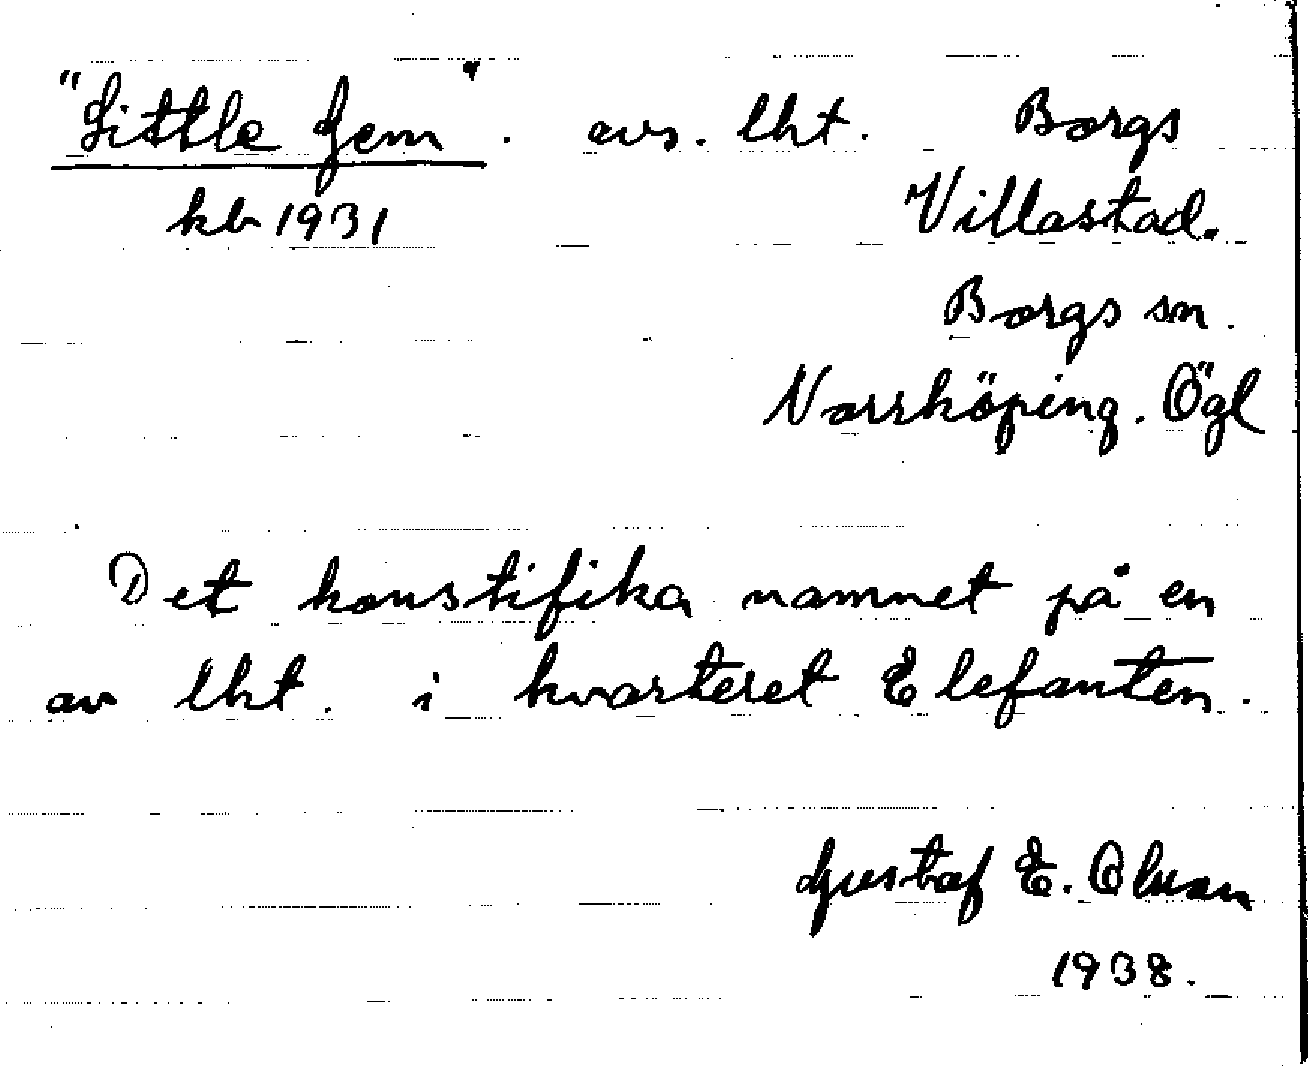 "Little Gem". avs. lht. Borgs
kb 1931 Villastad.
Borgs sn.
Norrköping. Ögl
Det konstifika namnet på en
av lht. i kvarteret Elefanten.
Gustaf E. Olsson
1938.